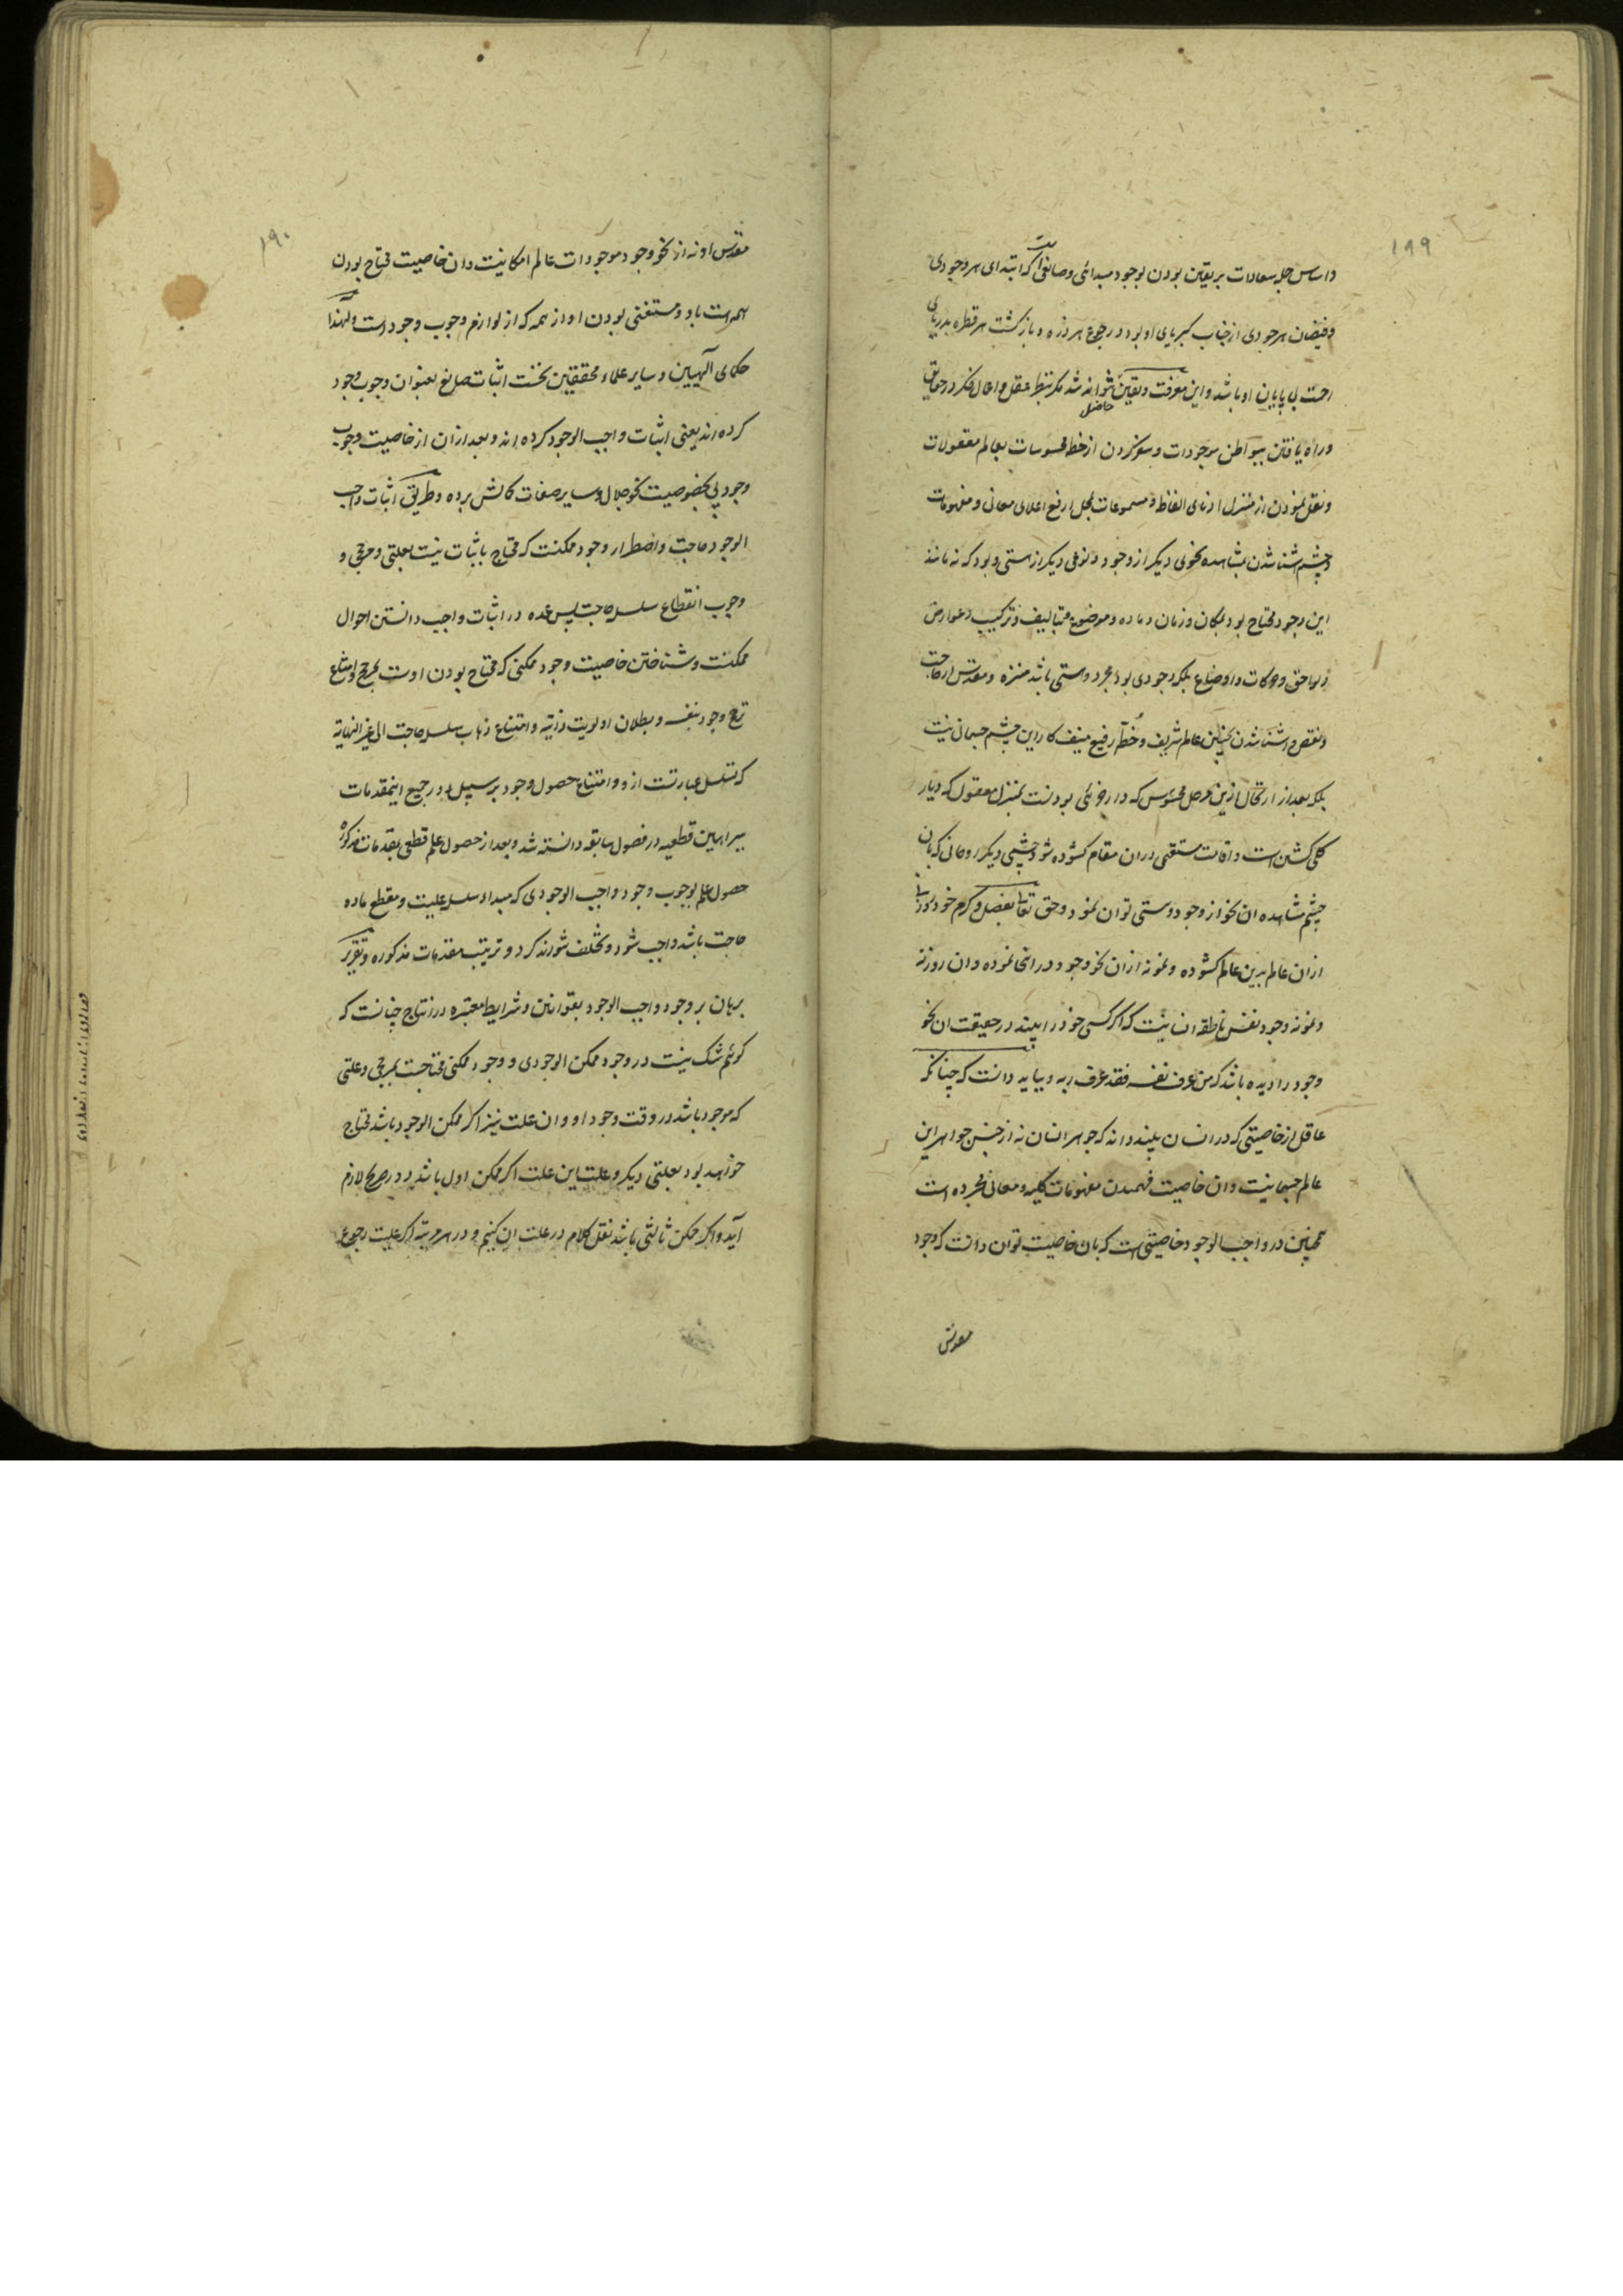 ۱۹۹
و اساس جمله سعادات بر یقین بودن بوجود مبدائی و صانعی است که ابتدای هر وجودی
و فیضان هر جودی از جناب کبریای او بود و رجوع هر ذره و بازگشت هر قطره بدریای
رحمت بی پایان او باشد و این معرفت و یقین حاصل نتواند شد مگر بنظر عقل و اعمال فکر در حقایق
و راه یافتن ببواطن موجودات و سفر کردن از خطه محسوسات بعالم معقولات
و نقل نمودن از منزل ادنای الفاظ و مسموعات بمحل ارفع اعلای معانی و مفهومات
و چشم آشنا شدن بمشاهده نحوی دیگر از وجود و نوعی دیگر از هستی و بود که نه مانند
این وجود محتاج بود بمکان و زمان و ماده و موضوع و بتالیف و ترکیب و عوارض
و لواحق و حرکات و اوضاع بلکه وجودی بود مجرد و هستی باشد منزه و مقدس از حاجت
و نقص و آشنا شدن بچنین عالم شریف و خطه رفیع منیف کار این چشم جسمانی نیست
بلکه بعد از ارتحال ازین مرحل محسوس که دار جزئی بودنست بمنزل معقول که دیار
کلی گشتن است و اقامت مستقمی در ان مقام گشوده شود چشمی دیگر روحانی که بان
چشم مشاهده ان نحو از وجود و هستی توان نمود و حق تعالی بفضل و کرم خود روزنه
از ان عالم بدین عالم گشوده و نمونه از ان نحو وجود در اینجا نموده و ان روزنه
و نمونه وجود نفس ناطقه انسانیت که اگر کسی خود را بیند در حقیقت ان نحو
وجود را دیده باشد که من عرف نفسه فقد عرف ربه و بباید دانست که چنانکه
عاقل از خاصیتی که در انسان بیند داند که جوهر انسان نه از جنس جواهر این
عالم جسمانیست و ان خاصیت فهمیدن مفهومات کلیه و معانی مجرده است
همچنین در واجب الوجود خاصیتی است که بان خاصیت توان دانست که وجود
مقدس
۱۹۰
مقدس او نه از نحو وجود موجودات عالم امکانیست و ان خاصیت محتاج بودن
همه است باو و مستغنی بودن او از همه که از لوازم وجوب وجود است و لهذا
حکمای الهیین و سایر علماء محققین نخست اثبات صانع بعنوان وجوب وجود
کرده اند یعنی اثبات واجب الوجود کرده اند و بعد از ان از خاصیت وجوب
وجود پی بخصوصیت نحو جلال و سایر صفات کمالش برده و طریق اثبات واجب
الوجود حاجت و اضطرار وجود ممکنست که محتاج باثبات نیست بعلتی و مرجحی و
وجوب انقطاع سلسله حاجت پس عمده در اثبات واجب دانستن احوال
ممکنست و شناختن خاصیت وجود ممکنی که محتاج بودن اوست بمرجح و امتناع
ترجح وجود بنفسه و بطلان اولویت ذاتیه و امتناع ذهاب سلسله حاجت الی غیر النهایة
که تسلسل عبارتست از و و امتناع حصول وجود بر سبیل دور جمیع اینمقدمات
ببراهین قطعیه در فصول سابقه دانسته شد و بعد از حصول علم قطعی بمقدمات مذکوره
حصول علم بوجوب وجود واجب الوجودی که مبداء سلسله علیت و مقطع ماده
حاجت باشد واجب شود و تخلف نتواند کرد و ترتیب مقدمات مذکوره و تقریر
برهان بر وجود واجب الوجود بقوانین و شرایط معتبره در انتاج چنانست که
گوئیم شک نیست در وجود ممکن الوجودی و وجود ممکنی محتاجست بمرجحی و علتی
که موجود باشد در وقت وجود او و ان علت نیز اگر ممکن الوجود باشد محتاج
خواهد بود بعلتی دیگر و علت این علت اگر ممکن اول باشد دور صریح لازم
آید و اگر ممکن ثالثی باشد نقل کلام در علت ان کنیم و در هر مرتبه اگر علیت رجوع